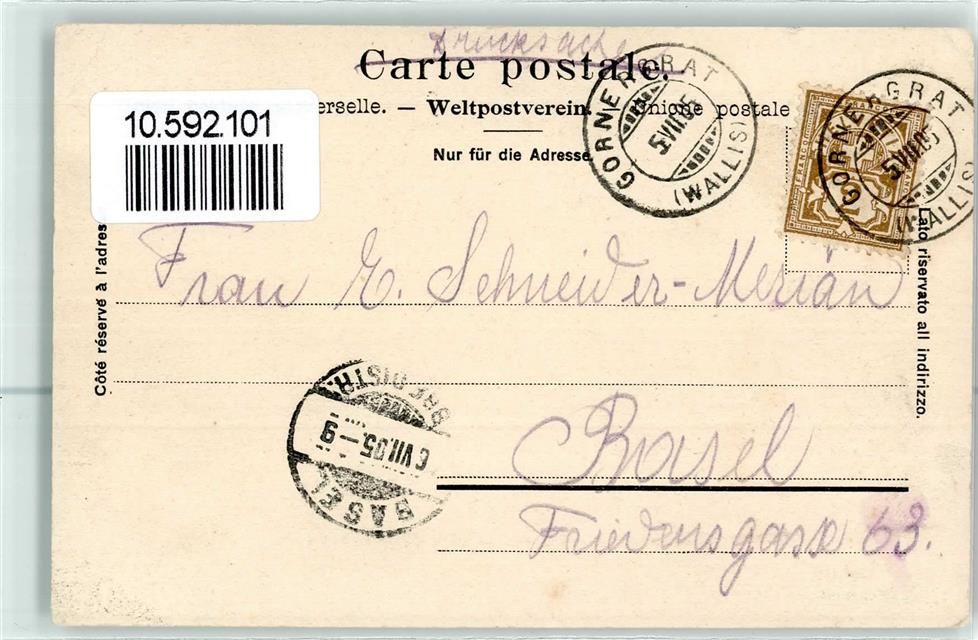 Drucksache
Carte postale.
erselle. — Weltpostverein. Unione postale
Nur für die Adresse
10.592.101
GORNERGRAT
5.VII.05
(WALLIS)
GORNERGRAT
5.VII.05
(WALLIS)
Côté réservé à l'adres
Lato riservato all indirizzo.
Frau E. Schneider-Merian
BRF. DISTR.
6 VII.05.–9
BASEL
Basel
Friedensgasse 63.